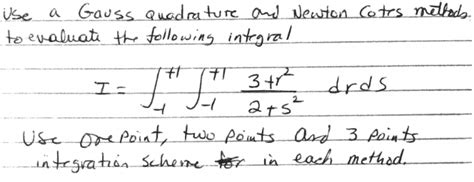 Use a Gauss quadrature and Newton Cotes methods,
to evaluate the following integral
I = ∫_{-1}^{+1} ∫_{-1}^{+1} \frac{3+r^2}{2+s^2} dr ds
Use one point, two points and 3 points
integration scheme for in each method.